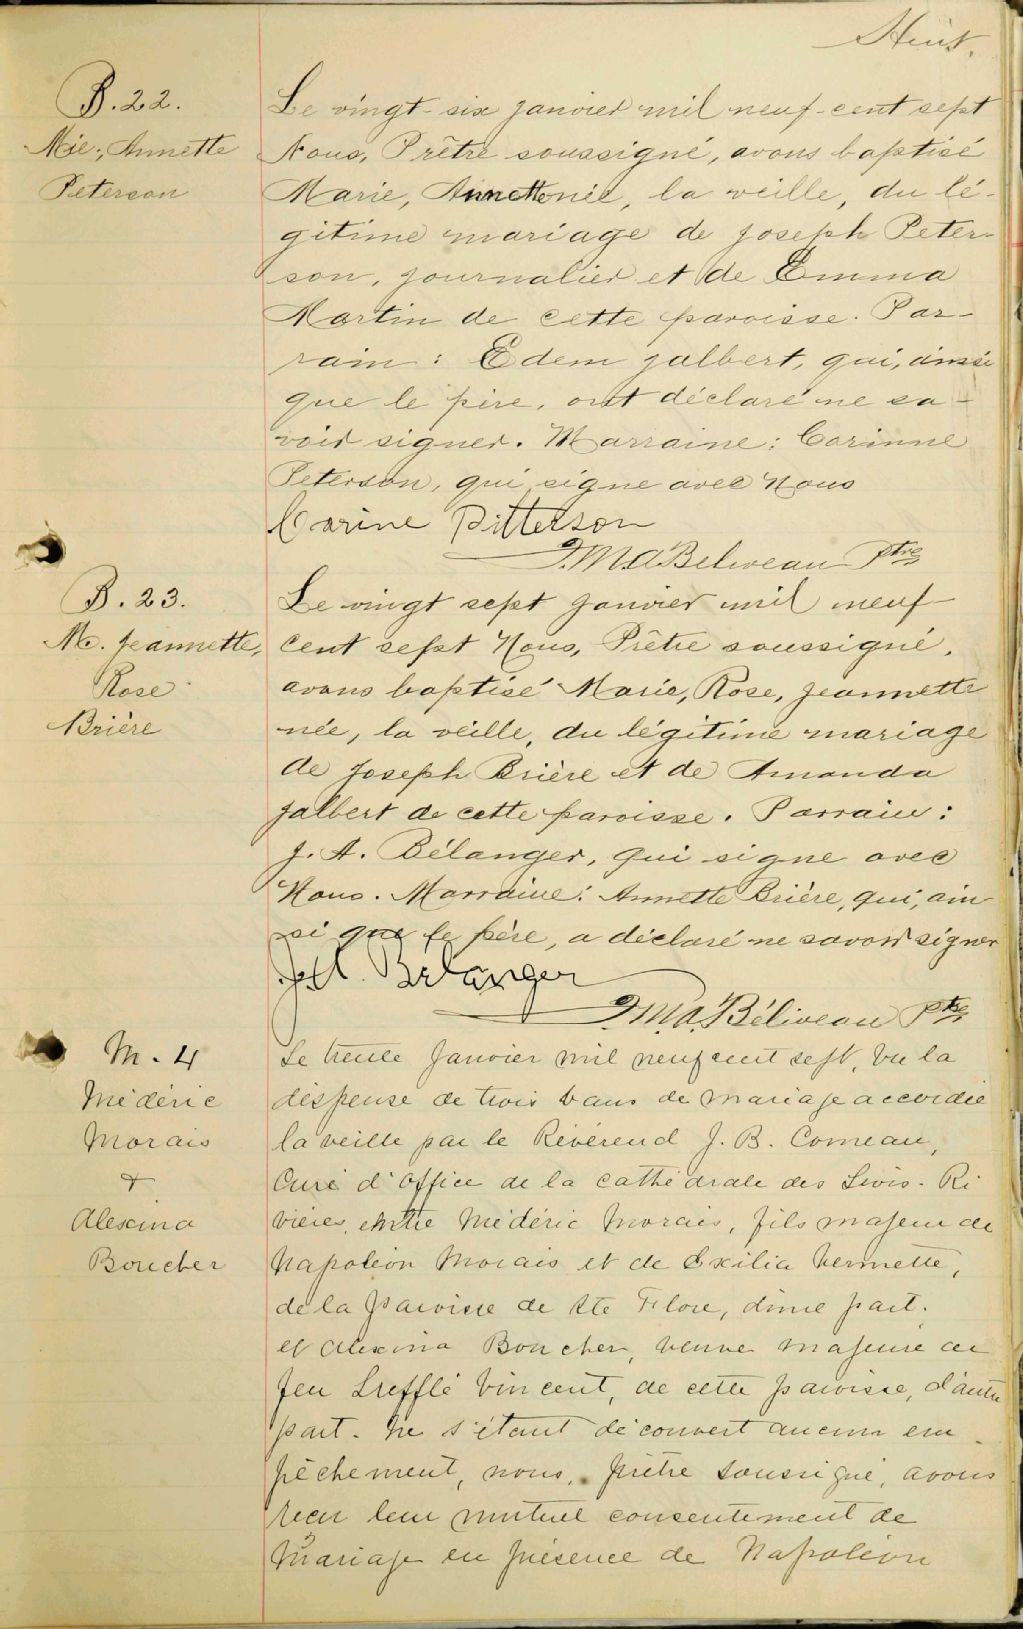 Huit.
B. 22.
Mie. Annette
Peterson
Le vingt-six janvier mil neuf-cent sept
Nous, Prêtre soussigné, avons baptisé
Marie, Annette née, la veille, du lé-
gitime mariage de Joseph Peter-
son, journalier et de Emma
Martin de cette paroisse. Par-
rain : Edem Jalbert, qui, ainsi
que le père, ont déclaré ne sa-
voir signer. Marraine : Corinne
Peterson, qui signe avec Nous
Corine Pitterson
J.M.A. Beliveau Ptre
B. 23.
M. Jeannette,
Rose
Brière
Le vingt sept janvier mil neuf
cent sept Nous, Prêtre soussigné,
avons baptisé Marie, Rose, Jeannette
née, la veille, du légitime mariage
de Joseph Brière et de Amanda
Jalbert de cette paroisse. Parrain :
J. A. Bélanger, qui signe avec
Nous. Marraine : Annette Brière, qui, ain-
si que le père, a déclaré ne savoir signer
J.A. Bélanger
J.M.A. Béliveau Ptre
M. 4
Médéric
Morais
+
Alexina
Boucher
Le trente Janvier mil neuf cent sept, vu la
dispense de trois bans de mariage accordée
la veille par le Révérend J. B. Comeau,
Curé d'office de la cathédrale des Trois-Ri
vières, entre Médéric Morais, fils majeur de
Napoléon Morais et de Exilia Vermette,
de la paroisse de Ste Flore, d'une part.
et Alexina Boucher, veuve majeure de
feu Trefflé Vincent, de cette paroisse, d'autre
part. Ne s'étant découvert aucun em-
pêchement, nous, prêtre soussigné, avons
reçu leur mutuel consentement de
mariage en présence de Napoléon